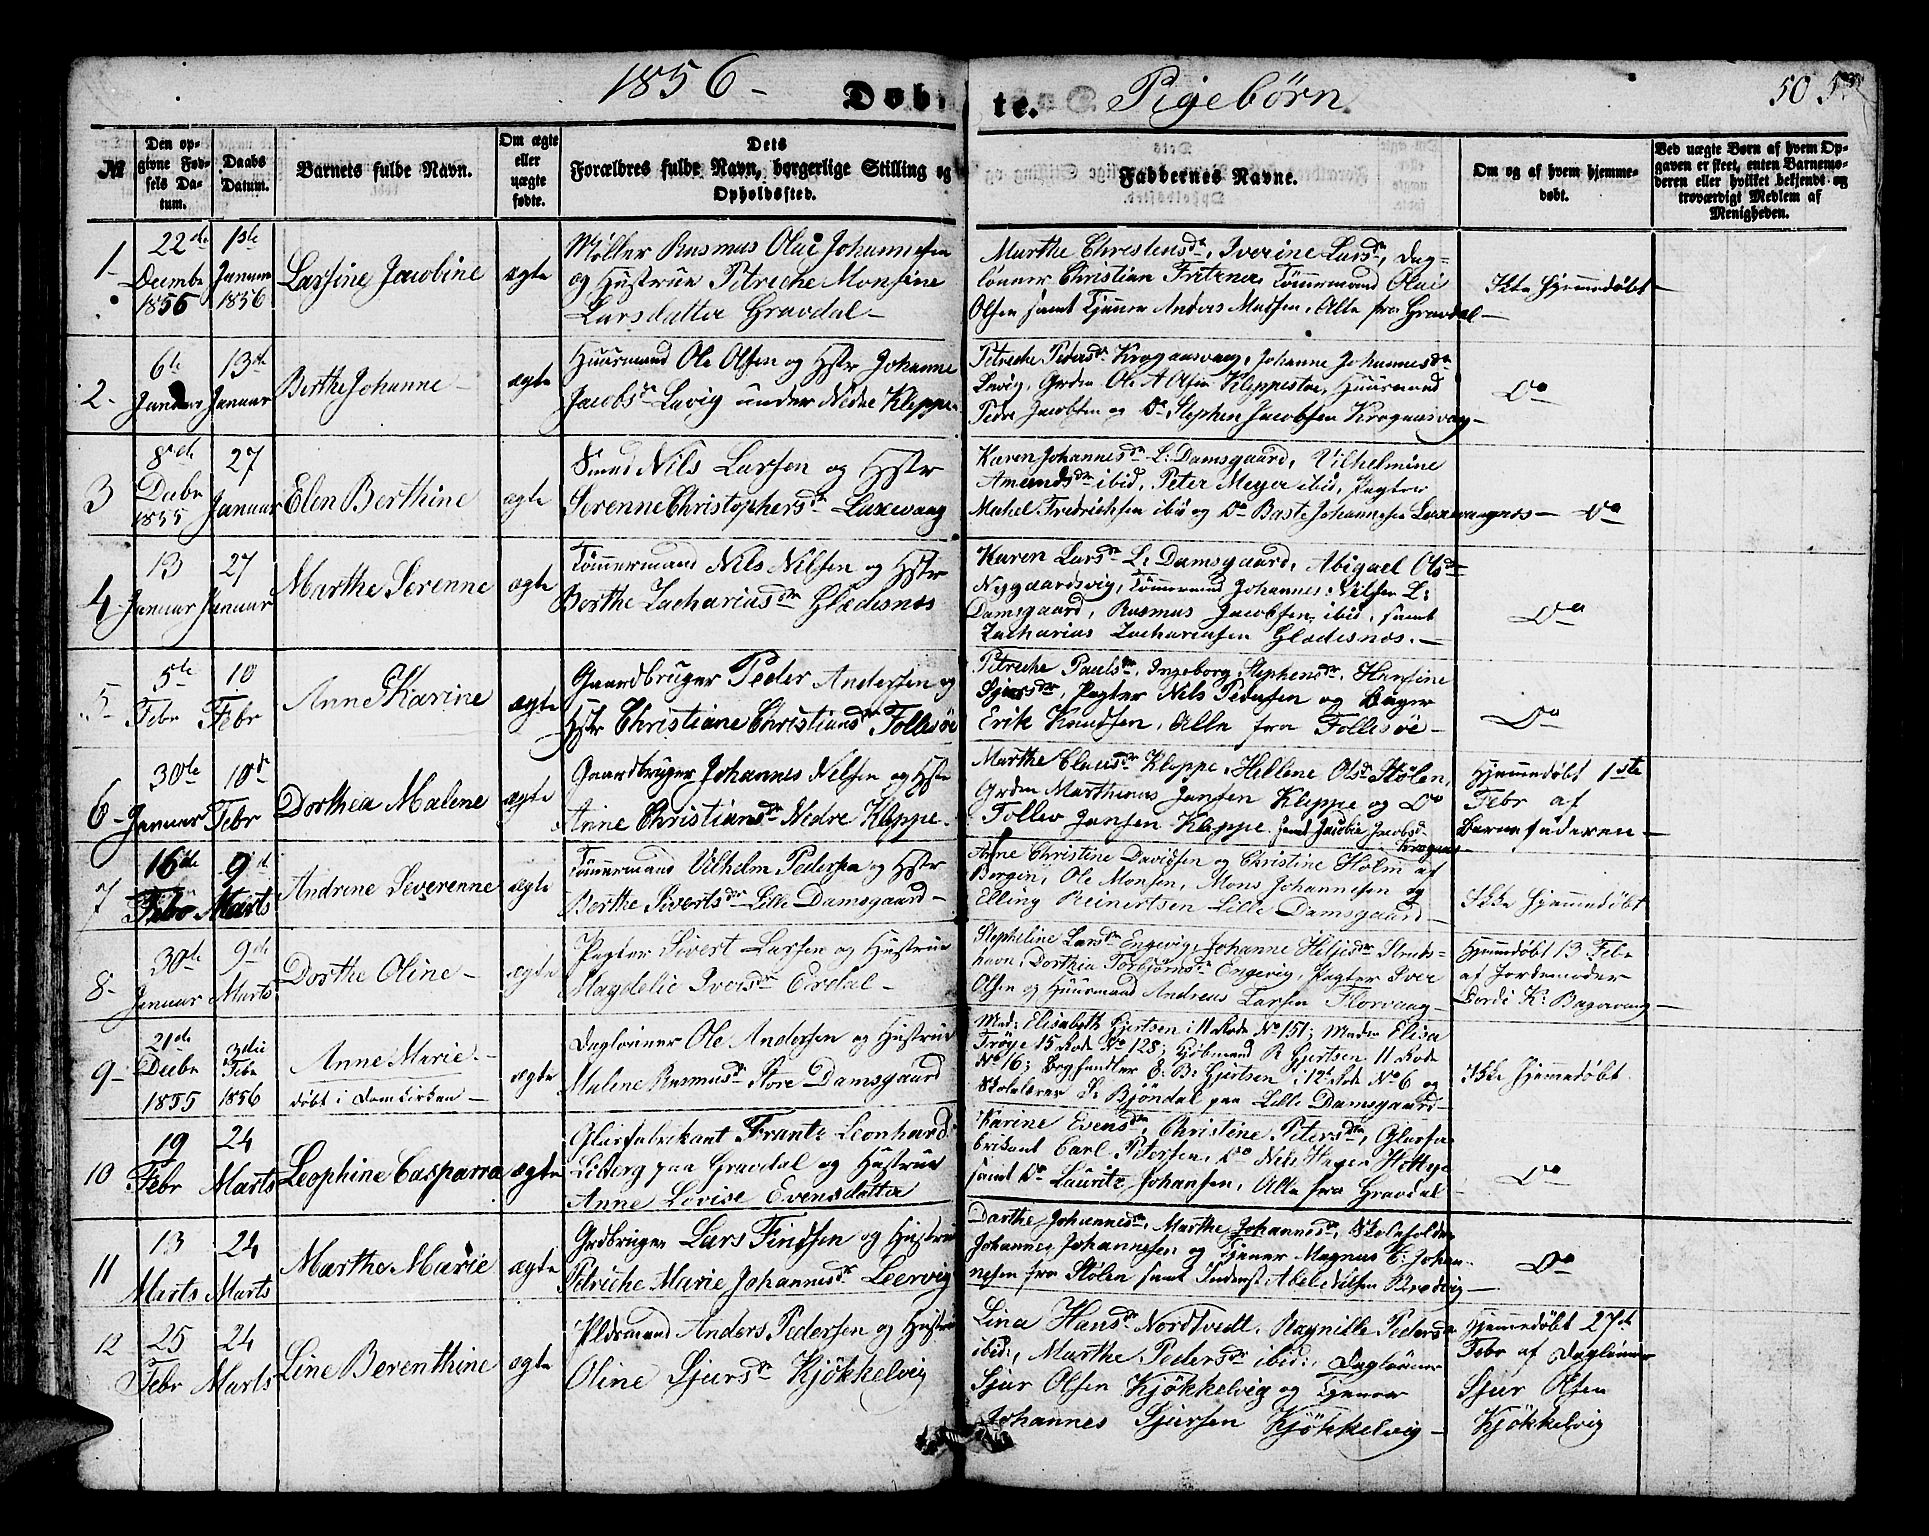 1856 -
Døbte.
Pigebørn
50
№
Den opgivne Fødsels Datum.
Daabs Datum.
Barnets fulde Navn.
Om ægte eller uægte fødte.
Dets Forældres fulde Navn, borgerlige Stilling og Opholdssted.
Faddernes Navne.
Om og af hvem hjemmedøbt.
Ved uægte Børn af hvem Opgaven er skeet, enten Barnemoderen eller hvilket bekjendt og troværdigt Medlem af Menigheden.
1-
22de Decembr 1855
1ste Januar 1856
Larsine Jacobine
ægte
Møller Rasmus Olai Johannesen
og Hustrue Petriche Monsine
Larsdatter Gravdal -
Marthe Christensdr, Iverine Larsdr, Dag-
lønner Christian Fritzner, Tömmermand Olai
Olsen samt Tjener Anders Madsen, Alle fra Gravdal -
Ikke Hjemmedøbt -
2-
6te Januar
13de Januar
Berthe Johanne -
ægte
Huusmand Ole Olsen og Hstr Johanne
Jacobsdr Lavig under Nedre Kleppe.
Petriche Pedersdr Krogaasvaag, Johanne Johannesdr
Lavig, Grdm Ole A Olsen Kleppestø, Huusmand
Peder Jacobsen og Do Stephen Jacobsen Krogaasvaag -
Do
3
8de Decbr 1855
27 Januar
Elen Berthine
ægte
Smed Nils Larsen og Hstr
Serenne Christophersdr Laxevaag
Karen Johannesdr L: Damsgaard, Vilhelmine
Amundsdr ibid, Peter Meyer ibid, Pagter
Michel Fredrichsen ibid og Do Baste Johannesen Laxevaagnes -
Do
4-
13 Januar
27 Januar
Marthe Serenne
ægte
Tömmermand Nils Nilsen og Hstr
Berthe Zachariasdr Gladesnes
Karen Larsdr L: Damsgaard, Abigael Olsdr
Nygaardsvig, Tömmermand Johannes Nilsen L:
Damsgaard, Rasmus Jacobsen, ibid, samt
Zacharias Zachariasen Gladesnes. -
Do
5-
5te Febr
10 Febr
Anne Karine
ægte
Gaardbruger Peder Andersen og
Hstr Christiane Christiansdr Follesøe
Petriche Paulsdr, Ingeborg Stephensdr, Hansine
Sjursdr, Pagter Nils Pedersen og Bager
Erik Knudsen, Alle fra Follesøe -
Do
6-
30te Januar
10de Febr
Dorthea Malene
ægte
Gaardbruger Johannes Nilsen og Hstr
Anne Christiansdr Nedre Kleppe.
Marthe Clausdr Kleppe, Hellene Olsd Stölen,
Grdm Marthinus Jansen Kleppe og Do
Tollev Jansen Kleppe. samt Jacobie Jacobsd.
Hjemmedøbt 1ste
Febr af
Barnefaderen -
7
16de Febr
9de Marts
Andrine Severenne
ægte
Tömmermand Vilhelm Pedersen og Hstr
Berthe Sivertsdr Lille Damsgaard -
Anne Christine Davidsen og Christine Holm af
Bergen, Ole Monsen, Mons Johannesen og
Elling Reinertsen Lille Damsgaard -
Ikke Hjemmedøbt
8-
30te Januar
9de Marts
Dorthe Oline -
ægte
Pagter Sivert Larsen og Hustrue
Magdeli Iversdr Erdal -
Stepheline Larsdr Engevig, Johanne Heljesdr Struds-
havn, Dorthia Torbjørnsdr Engevig, Pagter Iver
Olsen og Huusmand Andreas Larsen Florvaag -
Hjemmedøbt 13 Febr
af Jordemoder
Gordi K: Bagervaag -
9-
21de Decbr 1855
3die Febr 1856
Anne Marie -
døbt i Domkirken -
ægte
Daglønner Ole Andersen og Hustrue
Malene Rasmusdr Store Damsgaard
Mad: Elisabeth Gjertsen i 11 Rode No 151; Madm Elisa
Trøye 15 Rode No 128; Kjøbmand R Gjertsen 11 Rode
No 16; Boghandler E. B: Gjertsen i 12t Rode No 6 og
Skolelærer S: Bjöndal paa Lille Damsgaard -
Ikke Hjemmedøbt.
10
19 Febr
24 Marts
Leophine Casparra
ægte
Glasfabrikant Frantz Leonhard
Liberg paa Gravdal og Hustrue
Anne Lovise Evensdatter
Karine Evensdr, Christine Petersdr, Glasfa-
brikant Carl Petersen, Do Nils Hagen Hettye
samt Do Lauritz Johansen, Alle fra Gravdal -
Do
11
13 Marts
24 Marts
Marthe Marie
ægte
Grdbruger Lars Findsen og Hustrue
Petriche Marie Johannesdr Leervig
Dorthe Johannesdr, Marthe Johannesdr, Skoleholder
Johannes Johannesen og Tjener Magnus C: Johan-
nesen fra Stölen samt Inderst Abel Nilsen Bredvig -
Do
12
25 Febr
24 Marts
Line Berenthine
ægte
Pldsmand Anders Pedersen og Hustrue
Oline Sjursdr Kjøkkelvig
Lina Hansdr Nordtvedt, Ragnille Pedersdr
ibid:, Marthe Pedersdr ibid:, Daglønner
Sjur Olsen Kjøkkelvig og Tjener
Johannes Sjursen Kjøkkelvig -
Hjemmedøbt 27de
Febr af Daglønner
Sjur Olsen
Kjøkkelvig